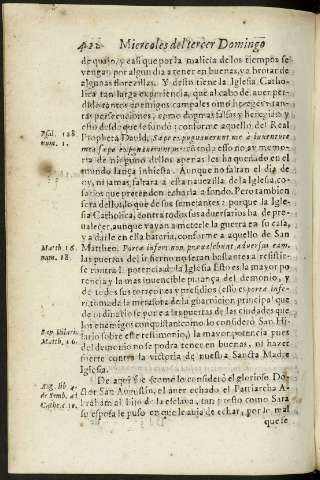 422 Miercoles del tercer Domingo
de quajo, y casi que por la malicia de los tiempos se
vengan por algun dia a tener en buenas, ya brotar de
algunas florecillas. Y desto tiene la Iglesia Catho-
lica tan larga experiencia, que al cabo de auer per-
enemigos campales como hereges, tan-
tas persecuciones, como dogmas falsos y heregias, y
esto desde que se fundó, conforme a aquello del Real
Psal. 128. Propheta Dauid, Sæpe expugnauerunt me à iuuentute
num. 1. mea sæpe expugnauerunt me: con todo esso no ay memo-
ria de ninguno dellos apenas les ha quedado en el
mundo lança inhiesta. Aunque no faltan el dia de
oy, ni jamas faltara a esta nauezilla de la Iglesia, co-
sarios que pretenden echarla a fondo. Pero tambien
sera dellos, lo que de sus semejantes: porque la Igle-
sia Catholica, contra todos sus aduersarios ha de pre-
ualecer, aunque vayan a meterle la guerra en su casa,
y a darle en ella bateria, conforme a aquello de San
Matth. 16. Mattheo, Portæ inferi non præualebunt aduersus eam,
num. 18. las puertas del infierno no seran bastantes a resistir-
se contra la potencia de la Iglesia. Esto es la mayor po-
tencia y la mas inuencible pujança del demonio, y
de todos sus torreones y presidios (esso es portæ infe-
ri, tomada la metafora de la guarnicion principal que
de ordinario se pone a las puertas de las ciudades que
los enemigos conquistan: como lo consideró San Hi-
Sup. Hilario lario sobre este testimonio) la mayor potencia pues
Matth. 16. del demonio no se podra tener en buenas, ni hazer
fuerte contra la victoria de nuestra Sancta Madre
Iglesia.
De aqui fue (como lo consideró el glorioso Do-
Aug. lib. 4. ctor San Augustin, el auer echado el Patriarcha A-
de Symb. ad braham al hijo de la esclaua, tan presto como Sara
Cathec. c. 12. su esposa le puso en que le auia de echar, por lo mal
que se